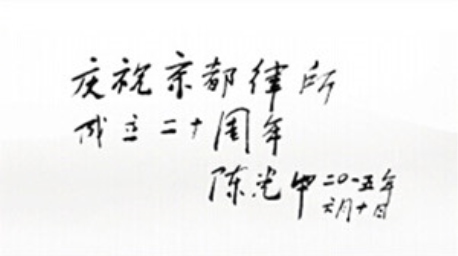 庆祝京都律所
成立二十周年
陈光中 二〇一五年
六月十日